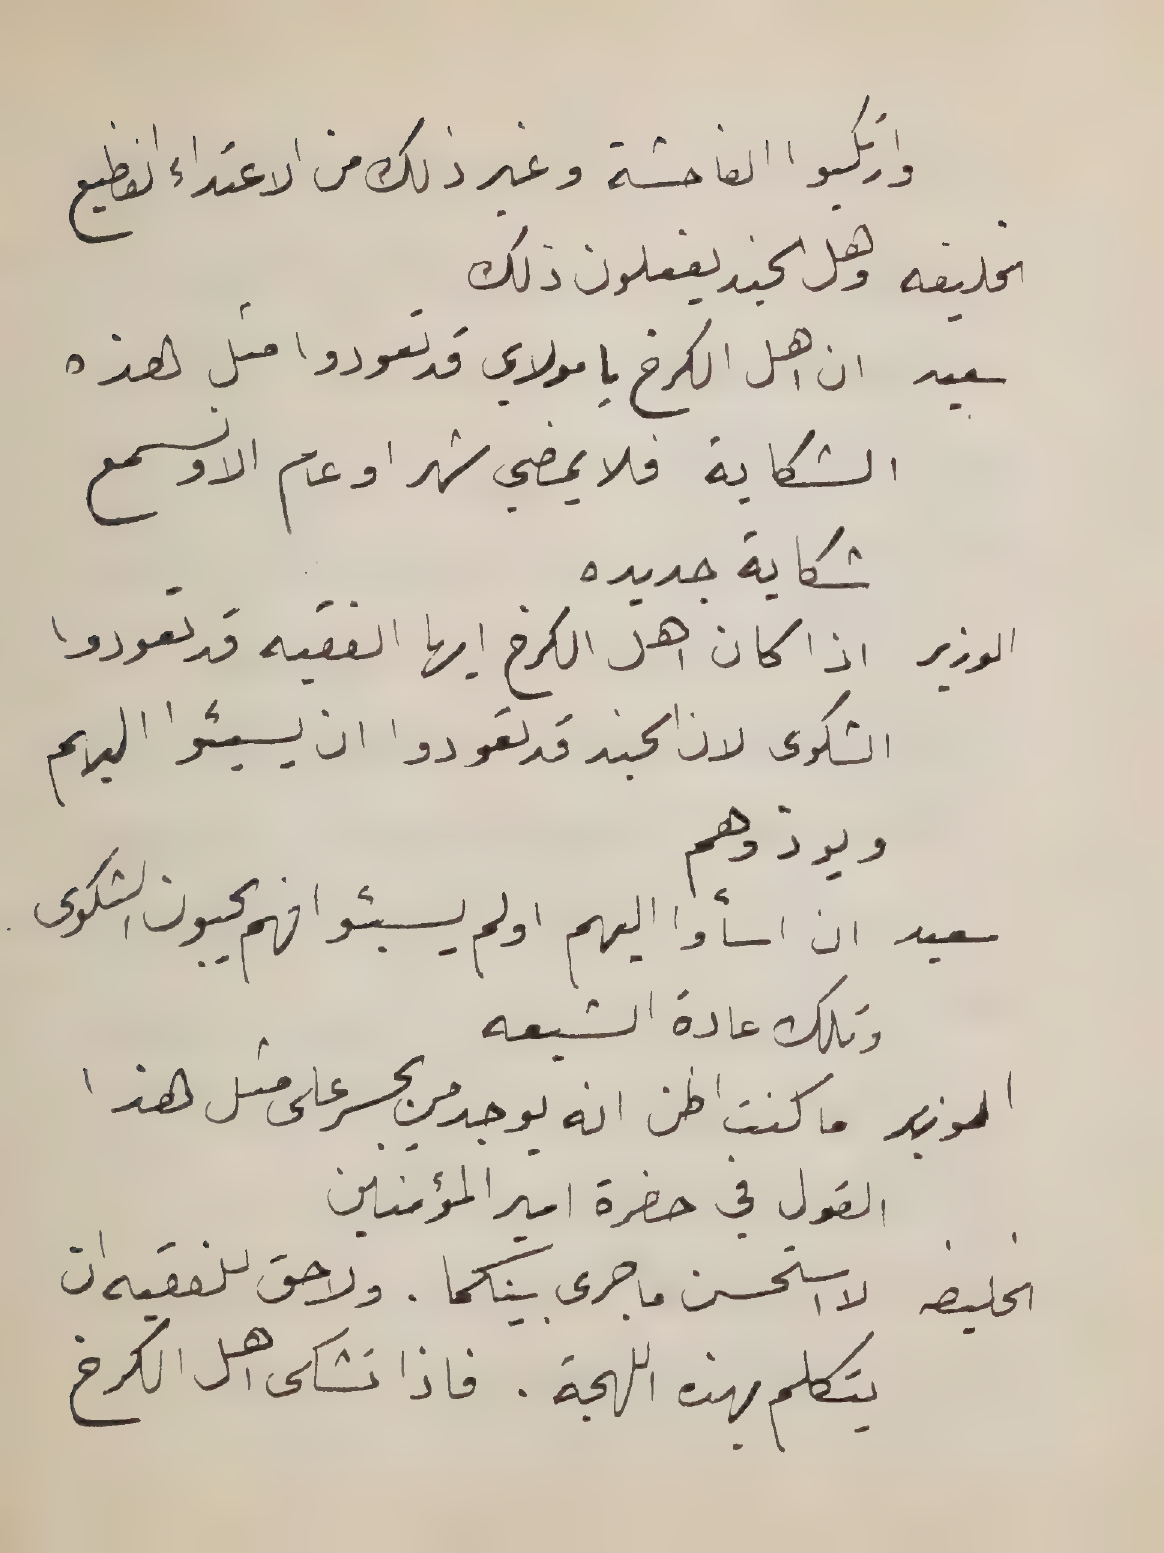 وارتكبوا الفاحشة وغير ذلك من الاعتداء الفظيع
الخليفه وهل الجند يفعلون ذلك
سعيد ان اهل الكرخ يا مولاي قد تعودوا مثل هذه
الشكاية فلا يمضي شهر او عام الا ونسمع
شكاية جديده
الوزير اذا كان اهل الكرخ ايها الفقيه قد تعودوا
الشكوى لان الجند قد تعودوا ان يسيئوا اليهم
ويوذوهم
سعيد ان اسأوا اليهم اولم يسيئوا فهم يحبون الشكوى
وتلك عادة الشيعه
الوزير ما كنت اظن انه يوجد من يجسر على مثل هذا
القول في حضرة امير المؤمنين
الخليفه لا استحسن ما جرى بينكما . ولا حق للفقيه ان
يتكلم بهذه اللهجة . فاذا تشاكى اهل الكرخ